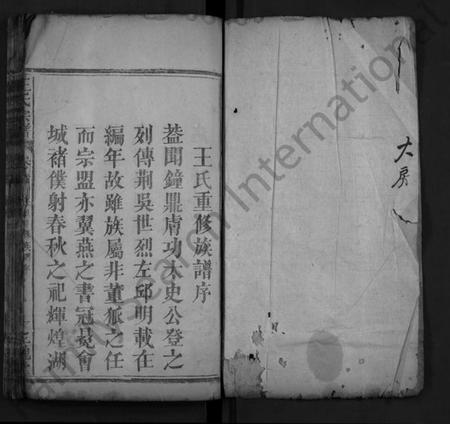 大房
王氏重修族譜序
葢聞鐘鼎膚功太史公登之
列傳荆吳世烈左邱明載在
編年故雖族屬非董狐之任
而宗盟亦翼燕之書冠裳會
城褚僕射春秋之祀輝煌湖
王氏宗譜